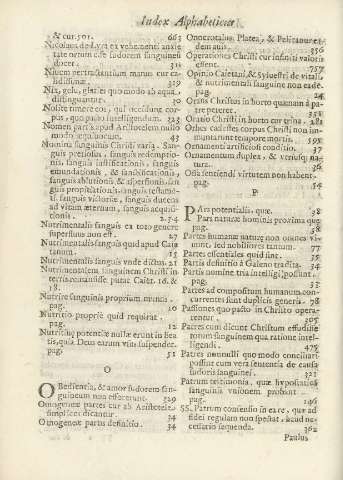 Index Alphabeticus
& cur. 501. 663
Nicolaus de Lyra ex vehementi anxie
tate verum esse sudorem sanguineū
docet. 311
Nix, gelu, glacies quo modo ab aqua
distinguantur. 30
Nolite timere eos, qui occidunt cor-
pus, quo pacto intelligendum. 323
Nomen partis apud Aristotelem nullo
modo
Nomina sanguinis Christi varia. San-
guis pretiosus, sanguis redemptio-
nis, sanguis iustificationis, sanguis
emundationis, & sanctificationis,
sanguis ablutionis, & aspersionis, san
guis propitiationis, sanguis testamē-
ti, sanguis victoriæ, sanguis ducens
ad vitam æternam, sanguis acquisi-
tionis. 254
Nutrimentalis sanguis ex toto genere
superfluus non est. 27
Nutrimentalis sanguis quid apud Caie
tanum. 15
Nutrimentalis sanguis vnde dictus. 21
Nutrimentalem sanguinem Christi in
terris remansisse putat Caiet. 16. &
18.
Nutrire sanguinis proprium munus.
pag. 10
Nutritio proprie quid requirat.
pag. 12
Nutritiuę potentiæ nullæ erunt in bea
tis, quia Deus earum vim suspendet.
pag. 51
O
OBedientia, & amor sudorem san-
guineum non effecerunt. 329
Omogeneæ partes cur ab Aristotele
simplices dicantur. 34
Omogeneæ partis definitio. 34
Onocrotalus, Platea, & Pelicanus
dem auis. 356
Operationes Christi cur infiniti valoris
essent. 757
Opinio Caietani, & Syluestri de vitali,
& nutrimentali sanguine non eadē.
pag. 24
Oratio Christi in horto cur trina. 281
Orbes cælestes corpus Christi non im-
mutarunt tempore mortis. 595
Ornamenti artificiosi conditio. 37
Ornamentum duplex, & vtriusq; na-
tura. 36
Ossa sentiendi virtutem non habent.
pag. 54
P
PArs potentialis, quæ. 38
Pars naturæ hominis proxima quę
pag. 38
Partes humanæ naturæ non omnes vi-
uunt, sed nobiliores tantum. 77
Partes essentiales quid sint. 35
Partis definitio à Galeno tradita. 34
Partis nomine tria intelligi possunt.
pag. 33
Partes ad compositum humanum con-
currentes sunt duplicis generis. 78
Passiones quo pacto in Christo opera-
rentur. 305
Patres cum dicunt Christum effudisse
totum sanguinem qua ratione intel-
ligendi. 475
Patres nonnulli quo modo conciliari
possint cum vera sententia de causa
sudoris sanguinei. 321
Patrum testimonia, quæ hypostaticā
sanguinis vnionem probant
pag. 146
SS. Patrum consensio in ea re, quæ ad
fidei regulam non spectat, haud ne-
cessario sequenda. 362
Paulus